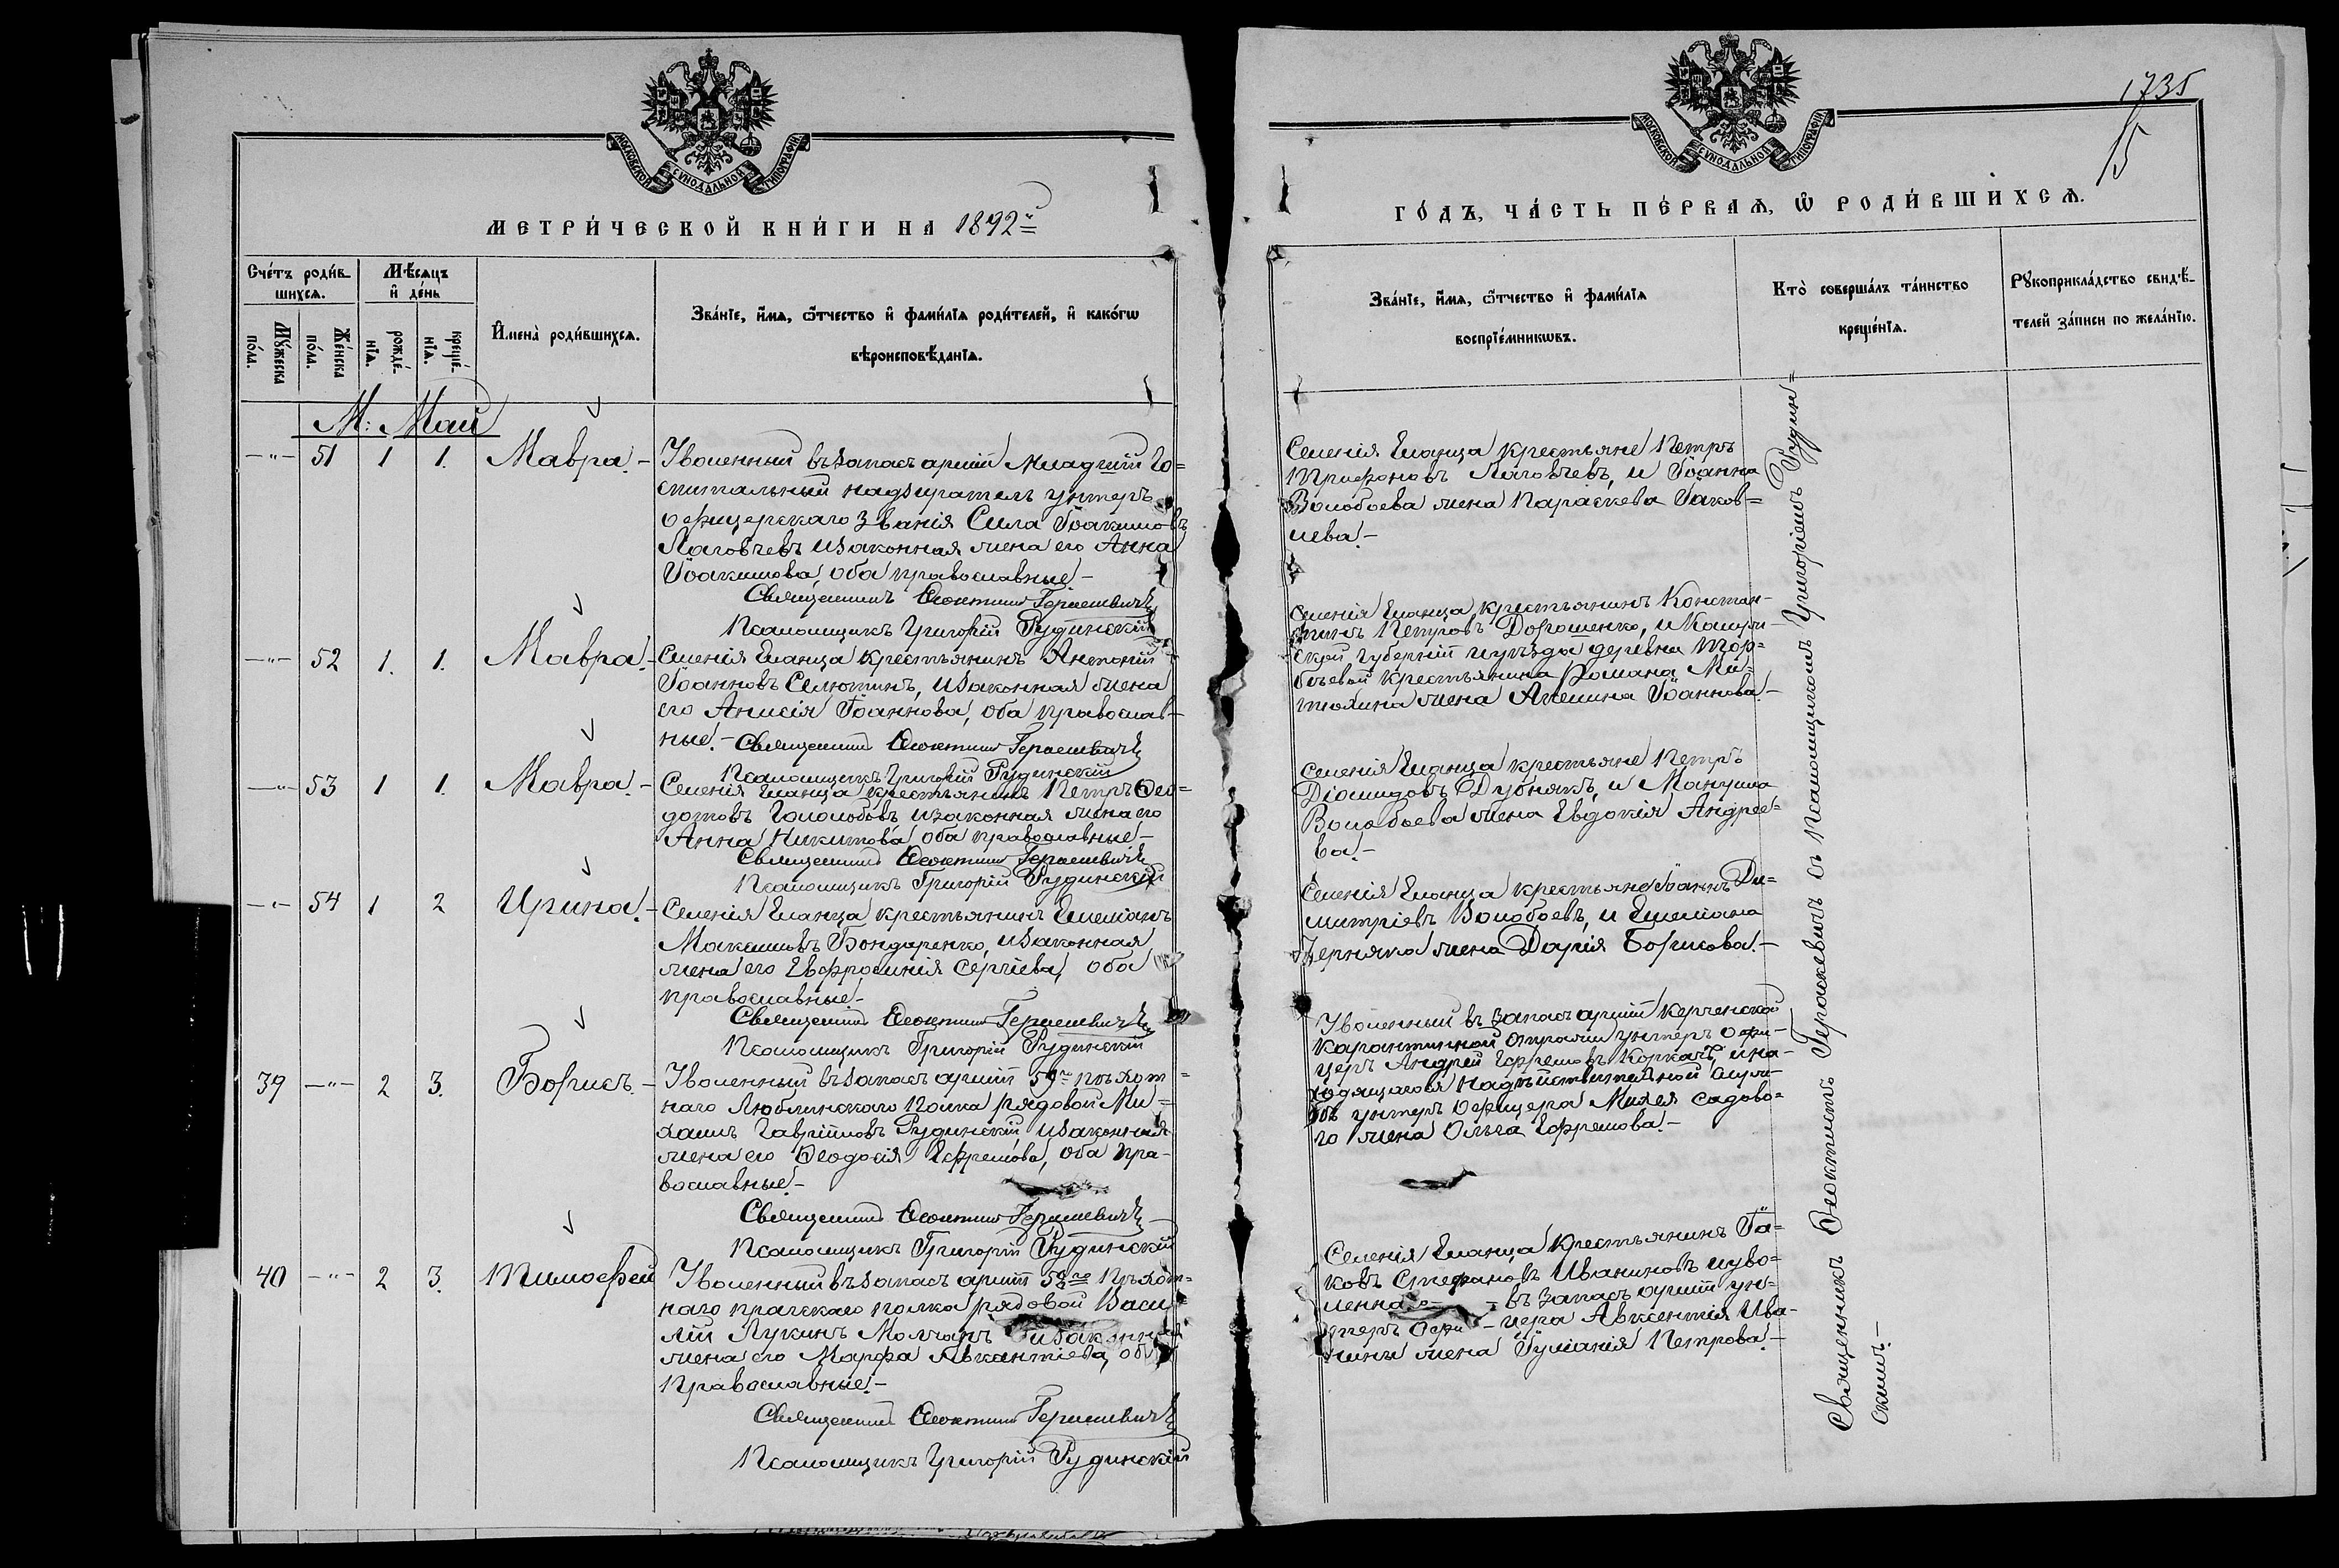 МОСКОВСКОЙ СѴНОДАЛЬНОЙ ТИПОГРАФІИ
МЕТРИ́ЧЕСКОЙ КНИ́ГИ НА 1892й
Сче́тъ роди́в-
шихсѧ.
Мꙋ́жеска
по́ла.
Же́нска
по́ла.
Мѣ́сѧцъ
и҆ де́нь
рожде́-
нїѧ.
креще́-
нїѧ.
И҆мена̀ роди́вшихсѧ.
Зва́нїе, и҆́мѧ, ѻ҆́тчество и҆ фами́лїѧ роди́телей, и҆ како́гѡ
вѣроисповѣ́данїѧ.
М: Май
-"- 51 1 1. Мавра.-
Уволенный въ запасъ арміи младшій го=
спитальный надзиратель унтеръ
офицерскаго званія Сила Іоакимовъ
Лаговчевъ и законная жена его Анна
Іоакимова, оба православные.-
Священникъ Ѳеоктистъ Гераскевичъ
Псаломщикъ Григорій Рудинскій
-"- 52 1. 1. Мавра.-
Селенія Еланца крестьянинъ Антоній
Іоанновъ Селютинъ, и законная жена
его Анисія Іоаннова, оба православ-
ные.- Священникъ Ѳеоктистъ Гераскевичъ
Псаломщикъ Григорій Рудинскій
-"- 53 1 1. Мавра.-
Селенія Еланца крестьянинъ Петръ Ѳео=
дотовъ Гололобовъ и законная жена его
Анна Никитова, оба православные.-
Священникъ Ѳеоктистъ Гераскевичъ
Псаломщикъ Григорій Рудинскій
-"- 54 1 2 Ирина.-
Селенія Еланца крестьянинъ Емеліанъ
Максимовъ Бондаренко, и законная
жена его Евфросинія Сергіева, оба
православные.-
Священникъ Ѳеоктистъ Гераскевичъ
Псаломщикъ Григорій Рудинскій
39 -"- 2 3. Борисъ.-
Уволенный въ запасъ арміи 59го пѣхот=
наго Люблинскаго полка рядовой Ми=
хаилъ Гавріиловъ Рудинскій, и законная
жена его Ѳеодосія Ефремова, оба пра-
вославные.-
Священникъ Ѳеоктистъ Гераскевичъ
Псаломщикъ Григорій Рудинскій
40 -"- 2 3. Тимофей
Уволенный въ запасъ арміи 58го пѣхот-
наго прагскаго полка рядовой Васи
лій Лукинъ Молчанъ и законная
жена его Марфа
Православные.-
Священникъ Ѳеоктистъ Гераскевичъ
Псаломщикъ Григорій Рудинскій
1735
15
МОСКОВСКОЙ СѴНОДАЛЬНОЙ ТИПОГРАФІИ
ГО́ДЪ, ЧА́СТЬ ПЕ́РВАѦ, Ѡ҆ РОДИ́ВШИХСѦ.
Зва́нїе, и҆́мѧ, ѻ҆́тчество и҆ фами́лїѧ
воспрїе́мникѡвъ.
Кто̀ соверша́лъ та́инство
креще́нїѧ.
Рꙋкоприкла́дство свидѣ́-
телей за́писи по жела́нїю.
Селенія Еланца крестьяне Петръ
Трифоновъ Лаговчевъ, и Іоанна
Волобоева жена Параскева Іаков=
лева.-
Селенія Еланца крестьянинъ Констан-
тинъ Петровъ Дорошенко, и
ской губерніи и уѣзда деревни
крестьянина Романа Ми-
жена Акелина Іоаннова.-
Селенія Еланца крестьяне Петръ
Діомидовъ Дубнякъ, и
Волобоева жена Евдокія Андрее=
ва.-
Селенія Еланца крестьяне Іоаннъ Ди=
митріевъ Волобоевъ, и Емеліана
Черняка жена Дарія Борисова.-
Уволенный въ запасъ арміи Керченской
карантинной стражи унтеръ офи-
церъ Андрей Ефремовъ и на-
ходящагося на дѣйствительной служ-
бѣ унтеръ офицера Михея Садово=
го жена Ольга Ефремова.-
Селенія Еланца крестьянинъ Іа=
ковъ Стефановъ Иваниновъ и уво=
леннаго - въ запасъ арміи ун-
теръ офи-цера Авксентія Ива-
нины жена Іуліанія Петрова.-
Священникъ Ѳеоктистъ Гераскевичъ съ псаломщикомъ Григоріемъ Рудин=
скимъ.-